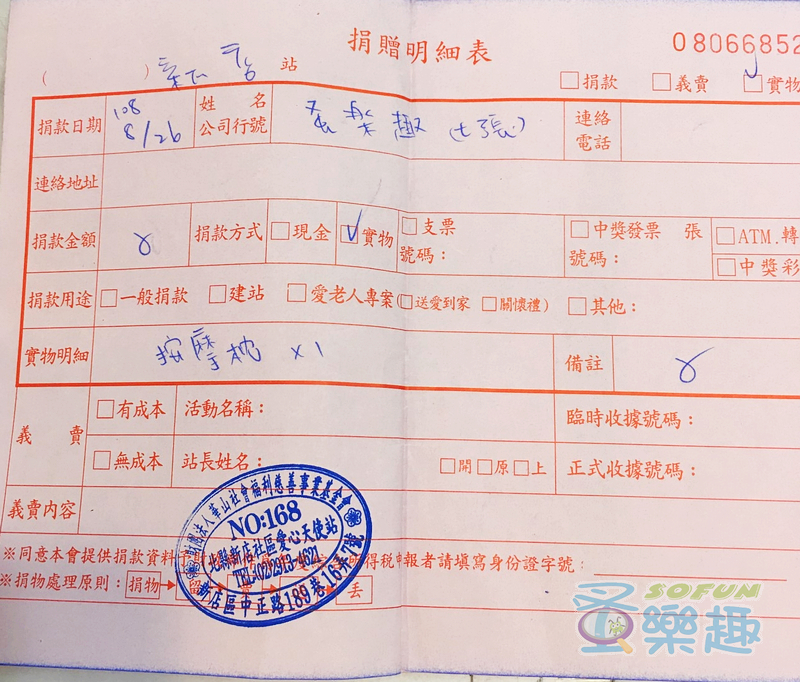 捐贈明細表
08066852
( ) 新店 站
□捐款 □義賣 ☑實物
捐款日期 108 8/26 姓名 公司行號 蚤樂趣 (七張) 連絡電話
連絡地址
捐款金額 捐款方式 □現金 ☑實物 □支票 號碼： □中獎發票 張 號碼： □ATM.轉 □中獎彩
捐款用途 □一般捐款 □建站 □愛老人專案(□送愛到家 □關懷禮) □其他：
實物明細 按摩枕 x1 備註
義賣 □有成本 活動名稱： 臨時收據號碼：
□無成本 站長姓名： □開□原□上 正式收據號碼：
義賣內容
※同意本會提供捐款資料予 所得稅申報者請填寫身份證字號：
※捐物處理原則：捐物→留 丟
財團法人華山社會福利慈善事業基金會
NO:168
北縣新店社區愛心天使站
TEL:02)2913-4621
新店區中正路189巷16弄7號
SOFUN
蚤樂趣